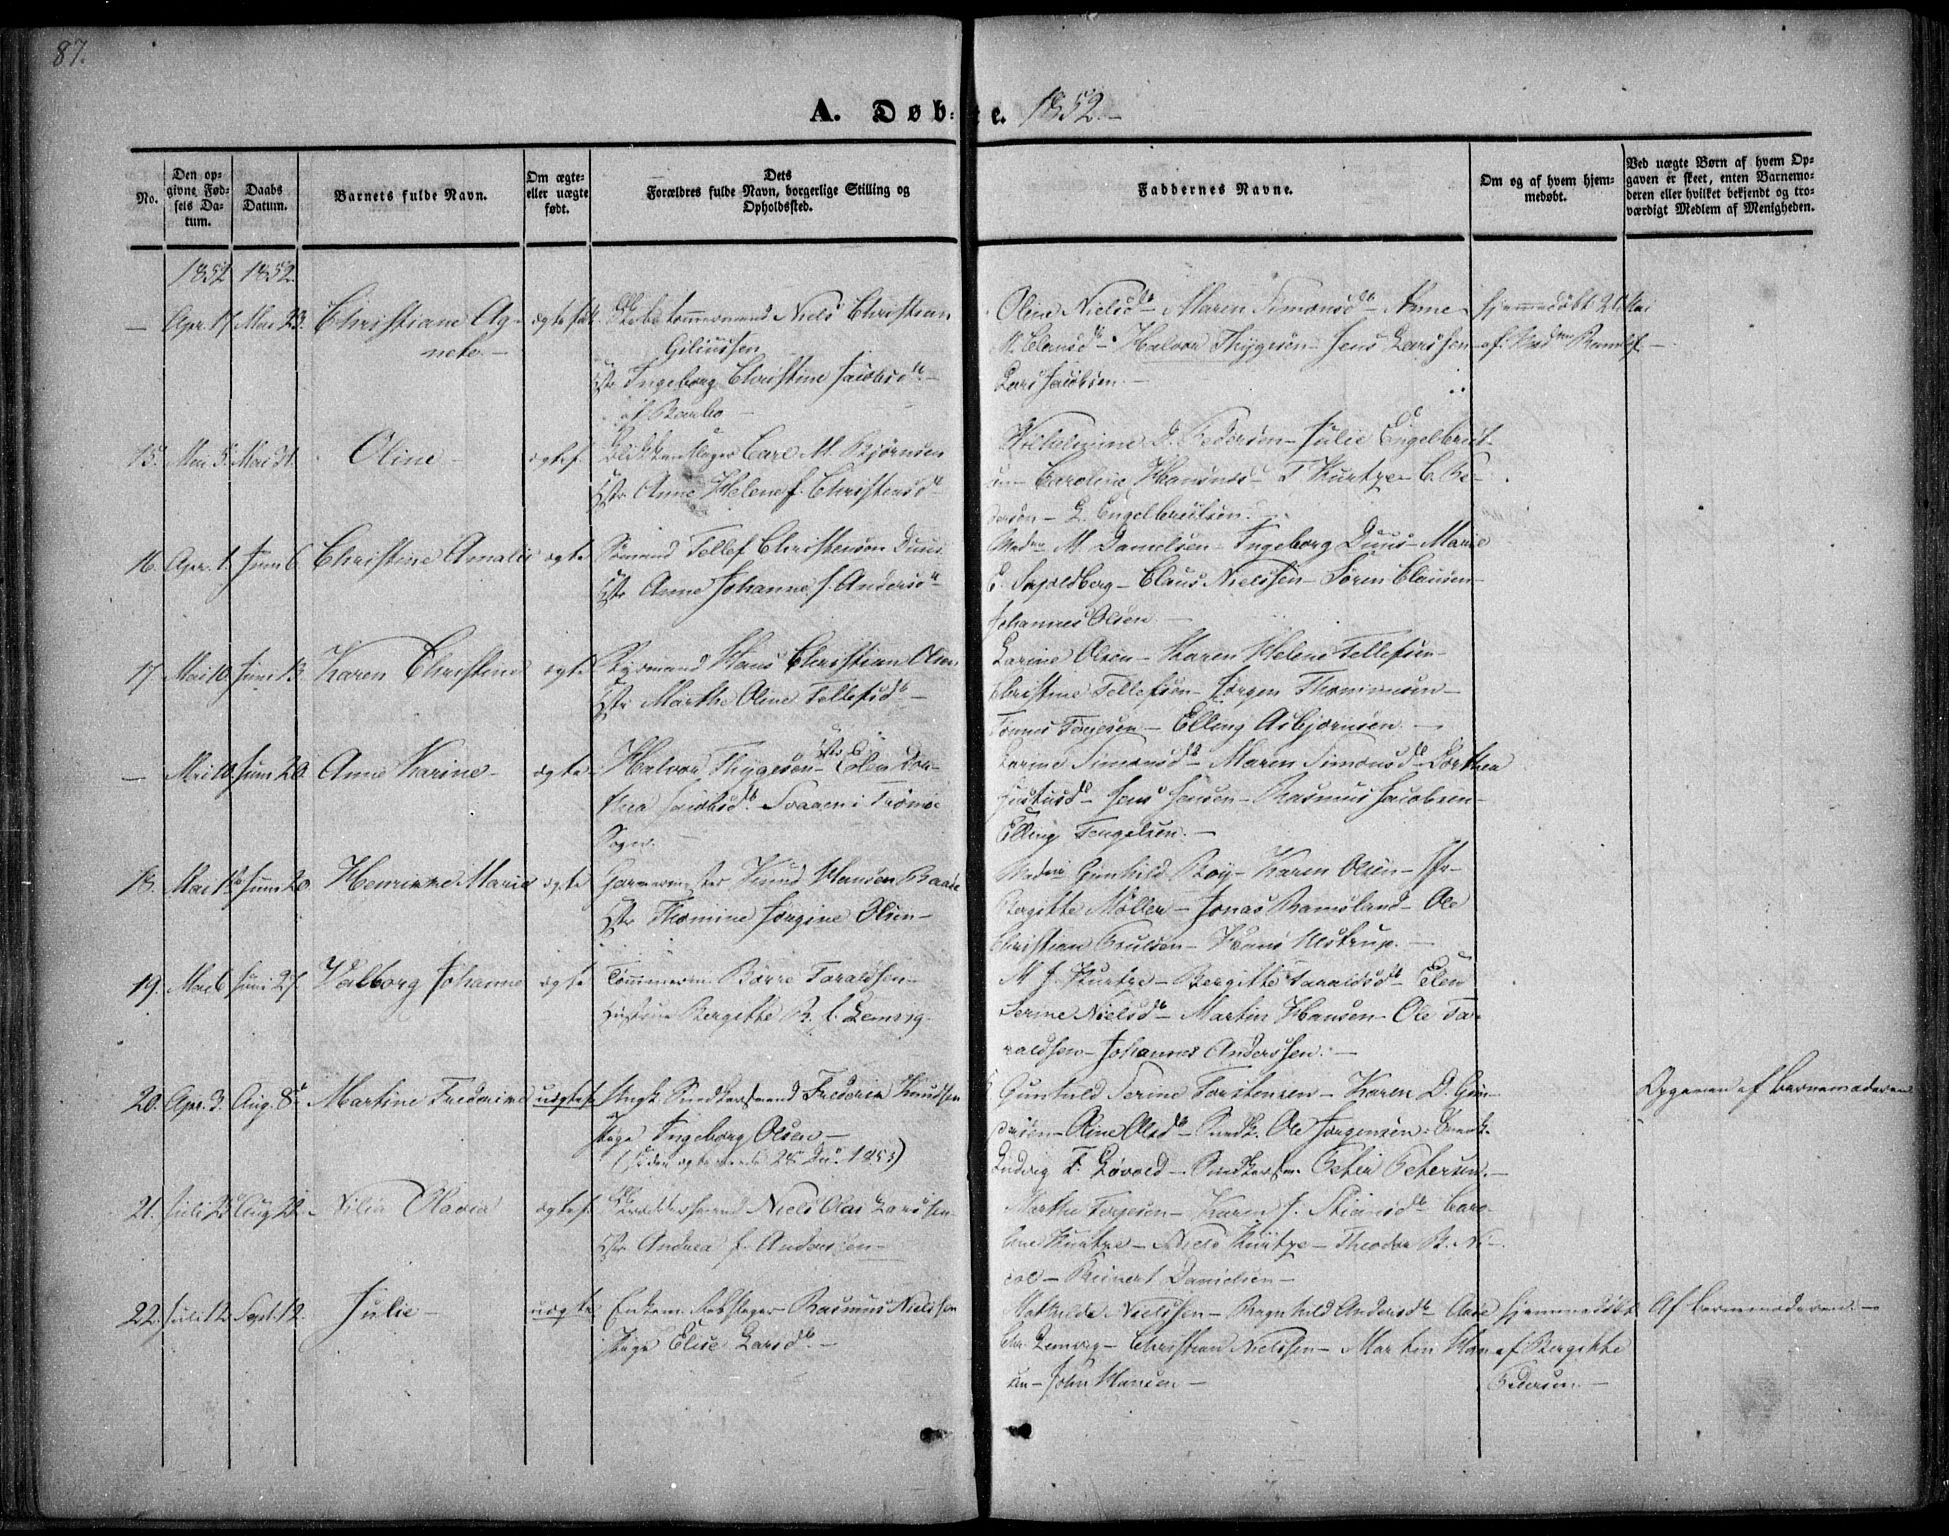 87.
A. Døb: e. 1852.
No.
Den op-
givne Fød-
sels Da-
tum.
Daabs
Datum.
Barnets fulde Navn.
Om ægte-
eller uægte
født.
Dets
Forældres fulde Navn, borgerlige Stilling og
Opholdssted.
Faddernes Navne.
Om og af hvem hjem-
medøbt.
Ved uægte Børn af hvem Op-
gaven er skeet, enten Barnemo-
deren eller hvilket bekjendt og tro-
værdigt Medlem af Menigheden.
1852 1852.
— Apr. 17 Mai 23. Christiane Ag-
nete —
ægtefødt
Niels Christian
Giliussen
Hstr Ingeborg Christine Jacobsd.
Oline Nielsd — Maren Simonsd — Anne
M. Clausd — Halvor Thygesen — Jens Larssen
Lars Jacobsen —
hjemmedøbt 20 Mai
15. Mai 5. Mai 31. Oline —
ægtef.
Carl M. Bjørnsen
Hstr Anne Helene f. Christensd
Wilhelmine D. Pedersen — Julie Engelbret-
sen — Caroline Hansend — T Kurtze — C. Pe-
dersen — L. Engelbretsen. —
16. Apr. 1. Juni 6. Christine Amalie
ægte
Sømand Tellef Christensen Duus
Hstr Anne Johanne f. Andersd
Madm M. Danielsen — Ingeborg Duus — Marie
E. Skjoldberg — Claus Nielssen — Søren Clausen
Johannes Olsen —
17. Mai 10. Juni 13. Karen Christine
ægte
Styrmand Hans Christian Olsen
Hstr Marthe Oline Tellefsd —
Larine Olsen — Maren Helene Tellefsen
Christine Tellefsen — Jørgen Thommesen —
Tønnes Terjesen — Elling Asbjørnsen. —
— Mai 10. Juni 20. Anne Karine —
ægte
Halvor Thygesen — Hstr Elen Dor-
thea Jacobsd. Svaaen i Tromø
Sogn. —
Larine Simonsd — Maren Simonsd — Dorthea
Justusd — Jens Jensen — Rasmus Jacobsen —
Elling Tengelsen. —
18. Mai 16 Juni 20. Henrikke Marie
ægte
Garvermester Knud Hansen Baade
Hstr Thomine Jørgine Olsen —
Madm Gunhild Boy — Karen Olsen — Jfr
Bergitte Møller — Jonas Ramsland — Ole
Christian Poulsen — Hans Ulstrup. —
19. Mai 6 Juni 27. Valborg Johanne
ægte
Tømmerm. Børre Taraldsen —
Hustrue Bergitte B. f. Lemvig.
M. J. Kurtze — Bergitte Taraldsd — Elen
Serine Nielsd — Martin Hansen — Ole Ta-
raldsen — Johannes Anderssen. —
20. Apr. 3. Aug. 8. Martine Frederine
uægtef.
Ungk. Snedkersvend Frederik Knudsen
Pige Ingeborg Olsen —
Gunhild Serine Torstensen — Karen D. Gun-
dersen — Oline Olsd — Snedk. Ole Jørgensen — Snedk.
Ludvig F. Løvold — Snedkersv. Peter Petersen. —
Opgaven af Barnemoderen
21. Juli 23 Aug. 21. Nilia Olavia
ægtef.
Niels Olai Larssen
Hstr Andrea f. Anderssen —
Marthe Terjesen — Karen J. Stiansd — Caro-
line Kurtze — Niels Kurtze — Theodor B. Ni-
col — Reinert Danielsen —
22. Juli 12 Sept. 12. Julie —
uægte
Enkem. Rebslager Rasmus Nielssen
Pige Elise Larsd. —
Mathilde Nielssen — Ragnhild Andersd — Aase
Chr. Lemvig — Christian Nielssen — Martin Han-
sen — John Hansen —
hjemmedøbt
af Bergitte
Pedersen —
Af Barnemoderen. —